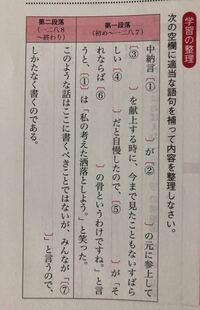 学習の整理
次の空欄に適当な語句を補って内容を整理しなさい。
第一段落
(初め〜一二八7)
中納言〔① 〕が〔② 〕の元に参上して
〔③ 〕を献上する時に、今まで見たこともないすばら
しい〔④ 〕だと自慢したので、〔⑤ 〕が「そ
れならば〔⑥ 〕の骨というわけですね。」と言
うと、〔①〕は「私の考えた洒落としよう。」と笑った。
第二段落
(一二八8
〜終わり)
このような話はここに書くべきことではないが、みんなが「〔⑦
〕」と言うので、
しかたなく書くのである。